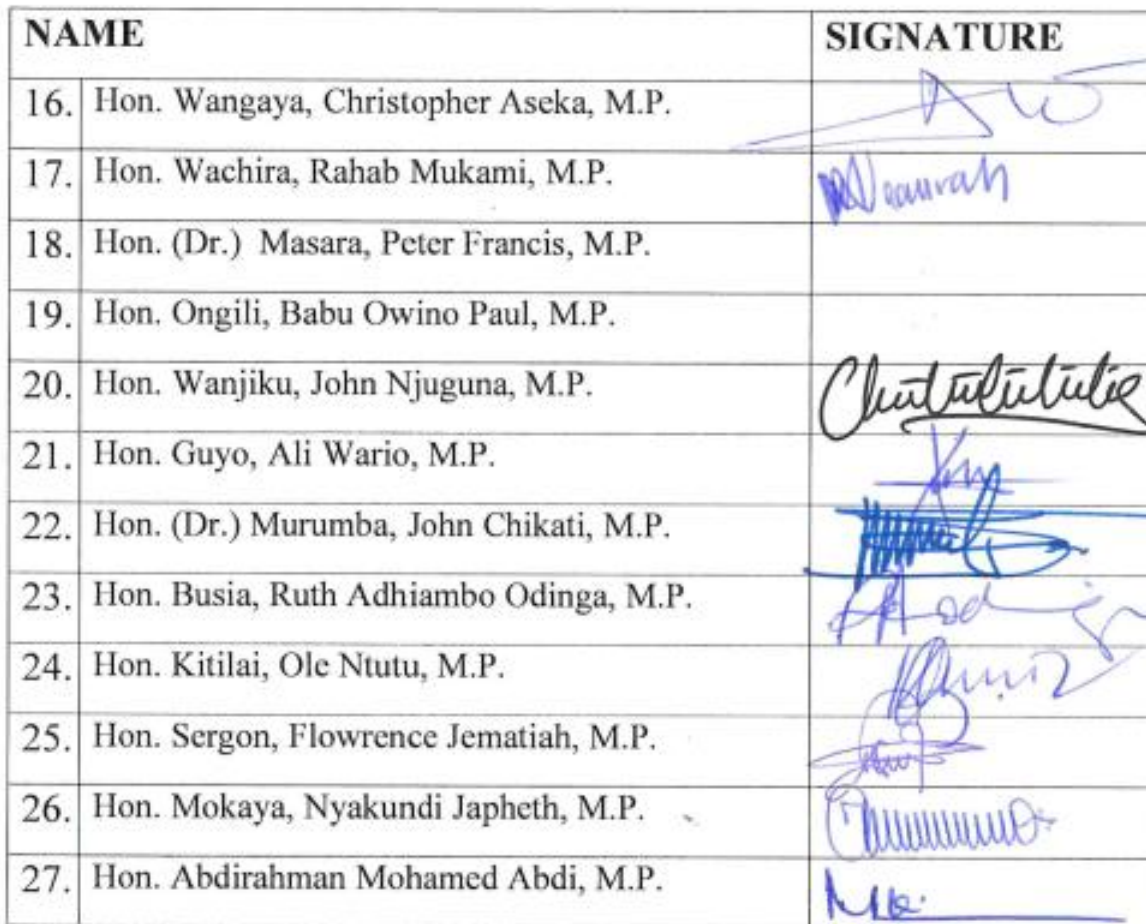 NAME SIGNATURE
16. Hon. Wangaya, Christopher Aseka, M.P.
17. Hon. Wachira, Rahab Mukami, M.P.
18. Hon. (Dr.) Masara, Peter Francis, M.P.
19. Hon. Ongili, Babu Owino Paul, M.P.
20. Hon. Wanjiku, John Njuguna, M.P.
21. Hon. Guyo, Ali Wario, M.P.
22. Hon. (Dr.) Murumba, John Chikati, M.P.
23. Hon. Busia, Ruth Adhiambo Odinga, M.P.
24. Hon. Kitilai, Ole Ntutu, M.P.
25. Hon. Sergon, Flowrence Jematiah, M.P.
26. Hon. Mokaya, Nyakundi Japheth, M.P.
27. Hon. Abdirahman Mohamed Abdi, M.P.